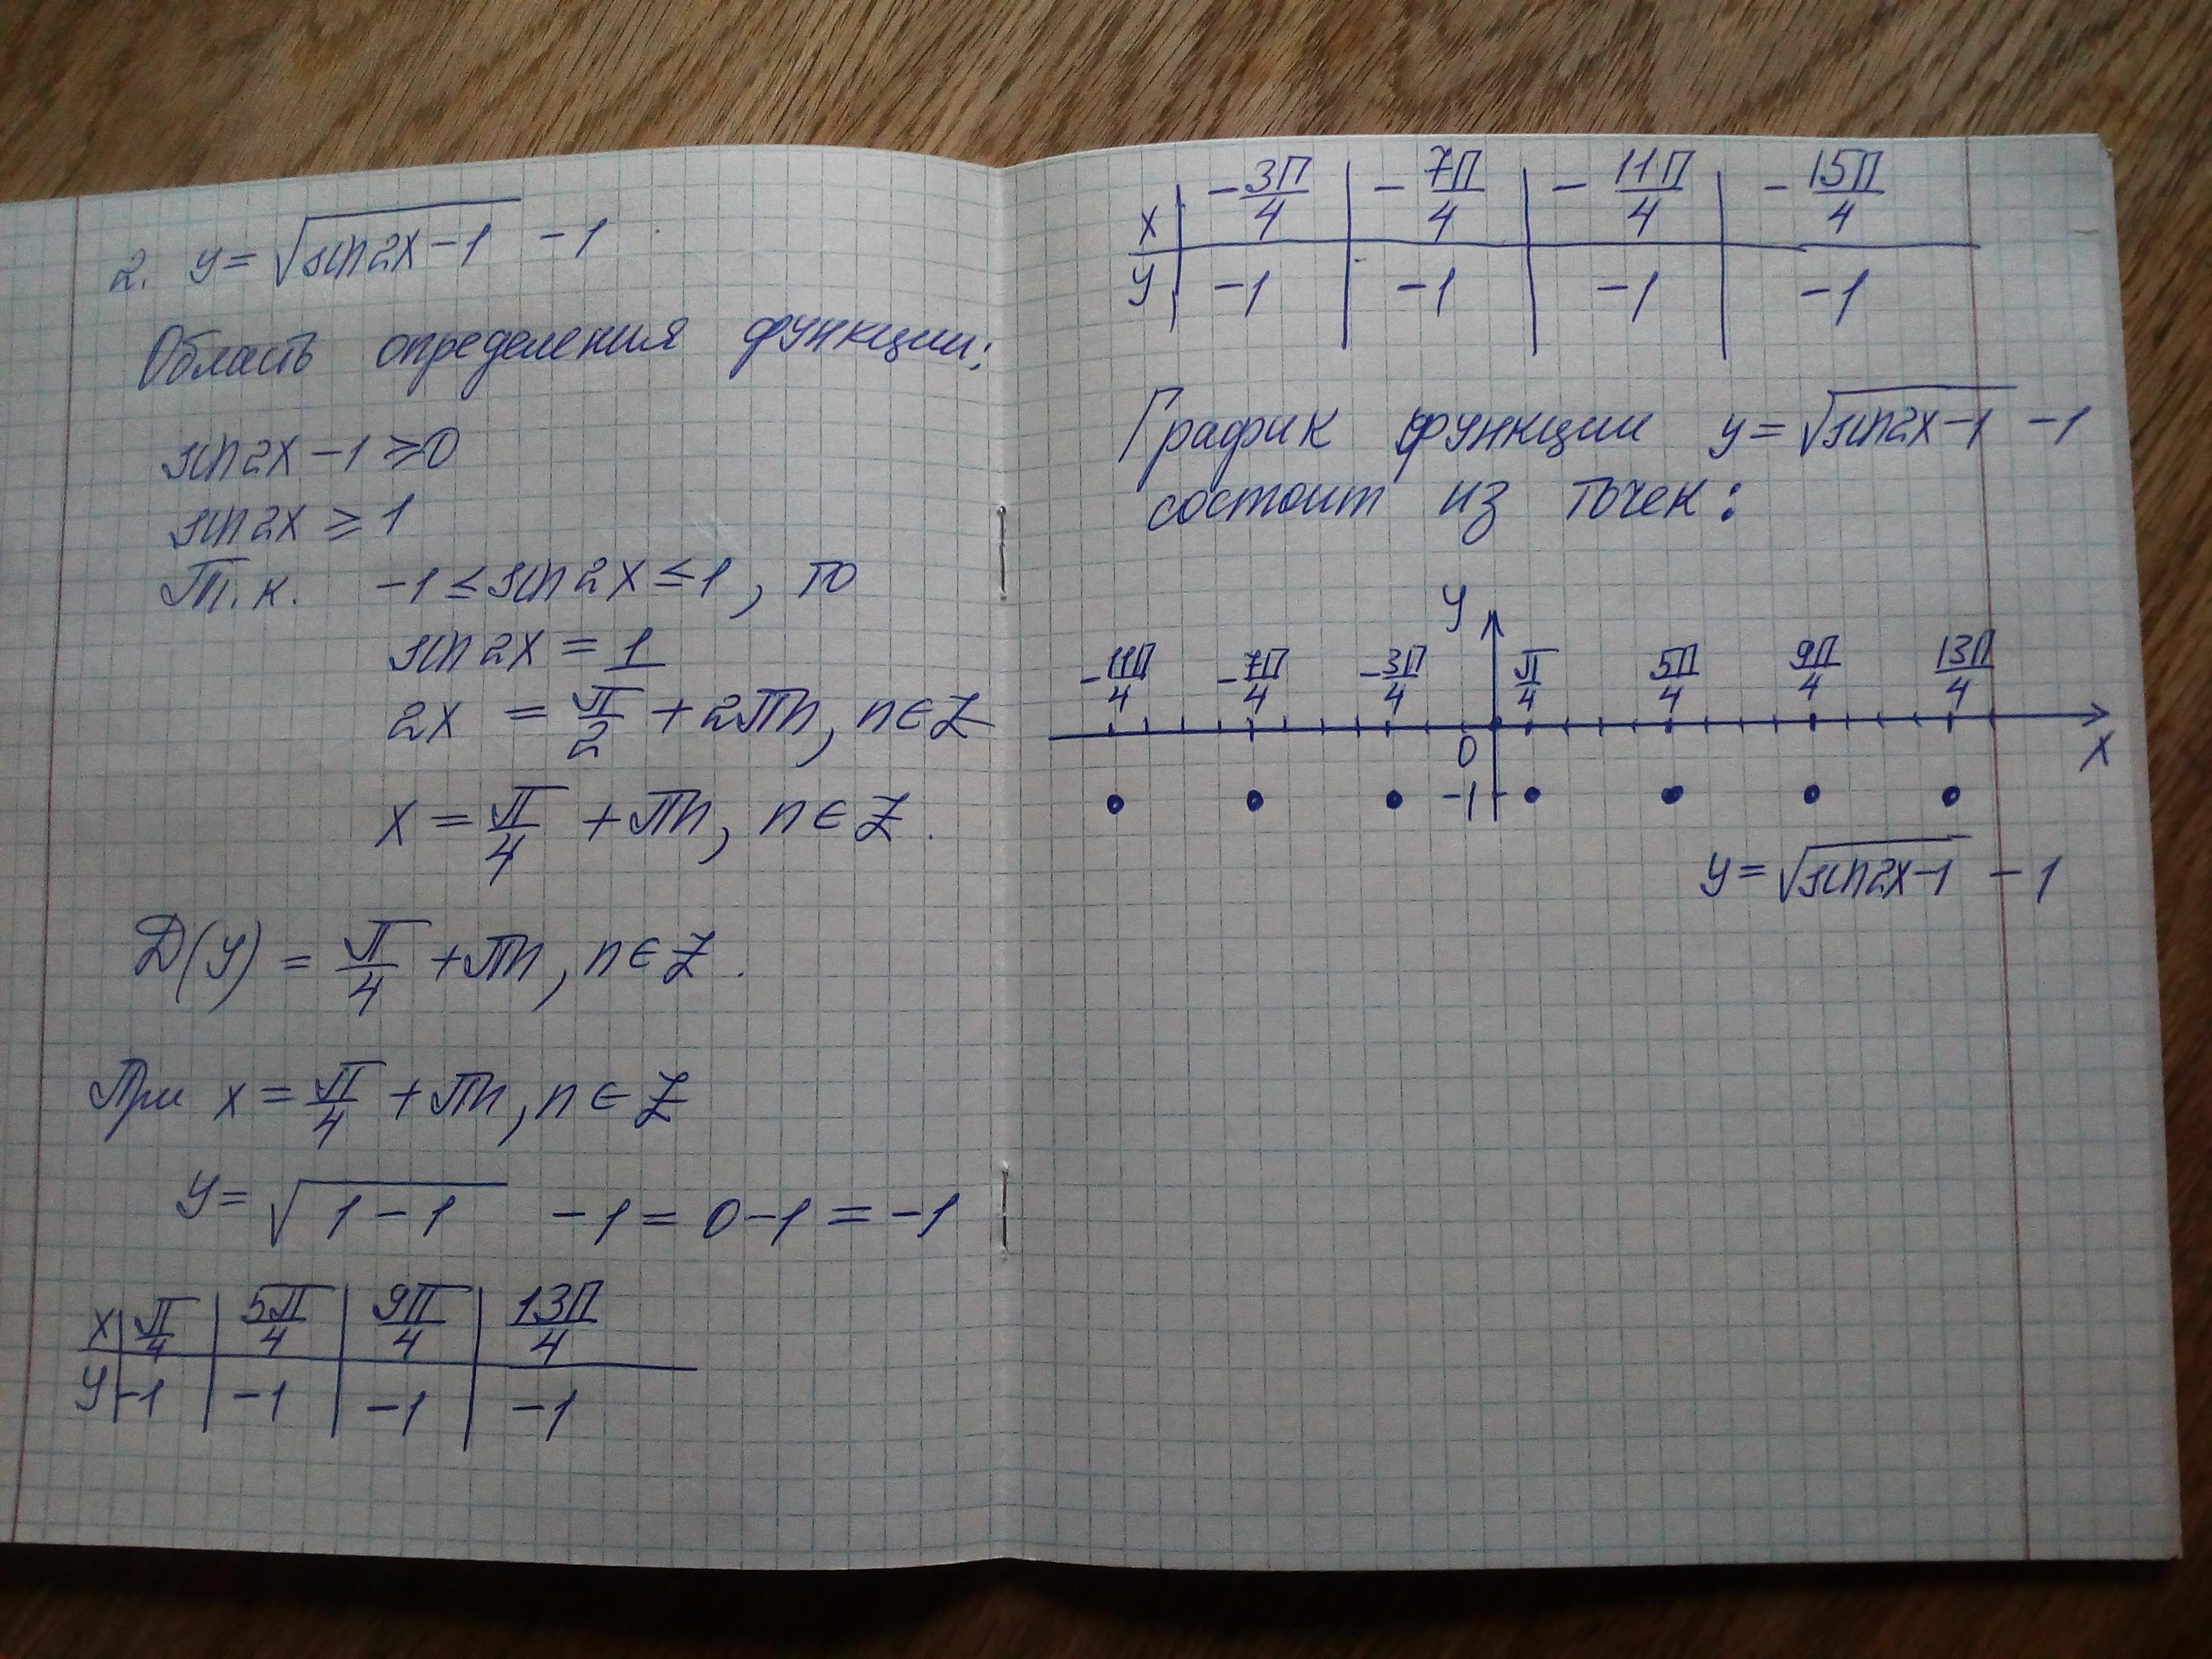 2. y = √(sin2x − 1) − 1
Область определения функции:
sin2x − 1 ≥ 0
sin2x ≥ 1
Т.к. −1 ≤ sin2x ≤ 1, то
sin2x = 1
2x = π/2 + 2πn, n ∈ Z
x = π/4 + πn, n ∈ Z.
D(y) = π/4 + πn, n ∈ Z.
При x = π/4 + πn, n ∈ Z
y = √(1 − 1) − 1 = 0 − 1 = −1
x | π/4 | 5π/4 | 9π/4 | 13π/4
y | −1 | −1 | −1 | −1
x | −3π/4 | −7π/4 | −11π/4 | −15π/4
y | −1 | −1 | −1 | −1
График функции y = √(sin2x − 1) − 1
состоит из точек:
y
−11π/4 −7π/4 −3π/4 π/4 5π/4 9π/4 13π/4
0 x
−1
y = √(sin2x − 1) − 1